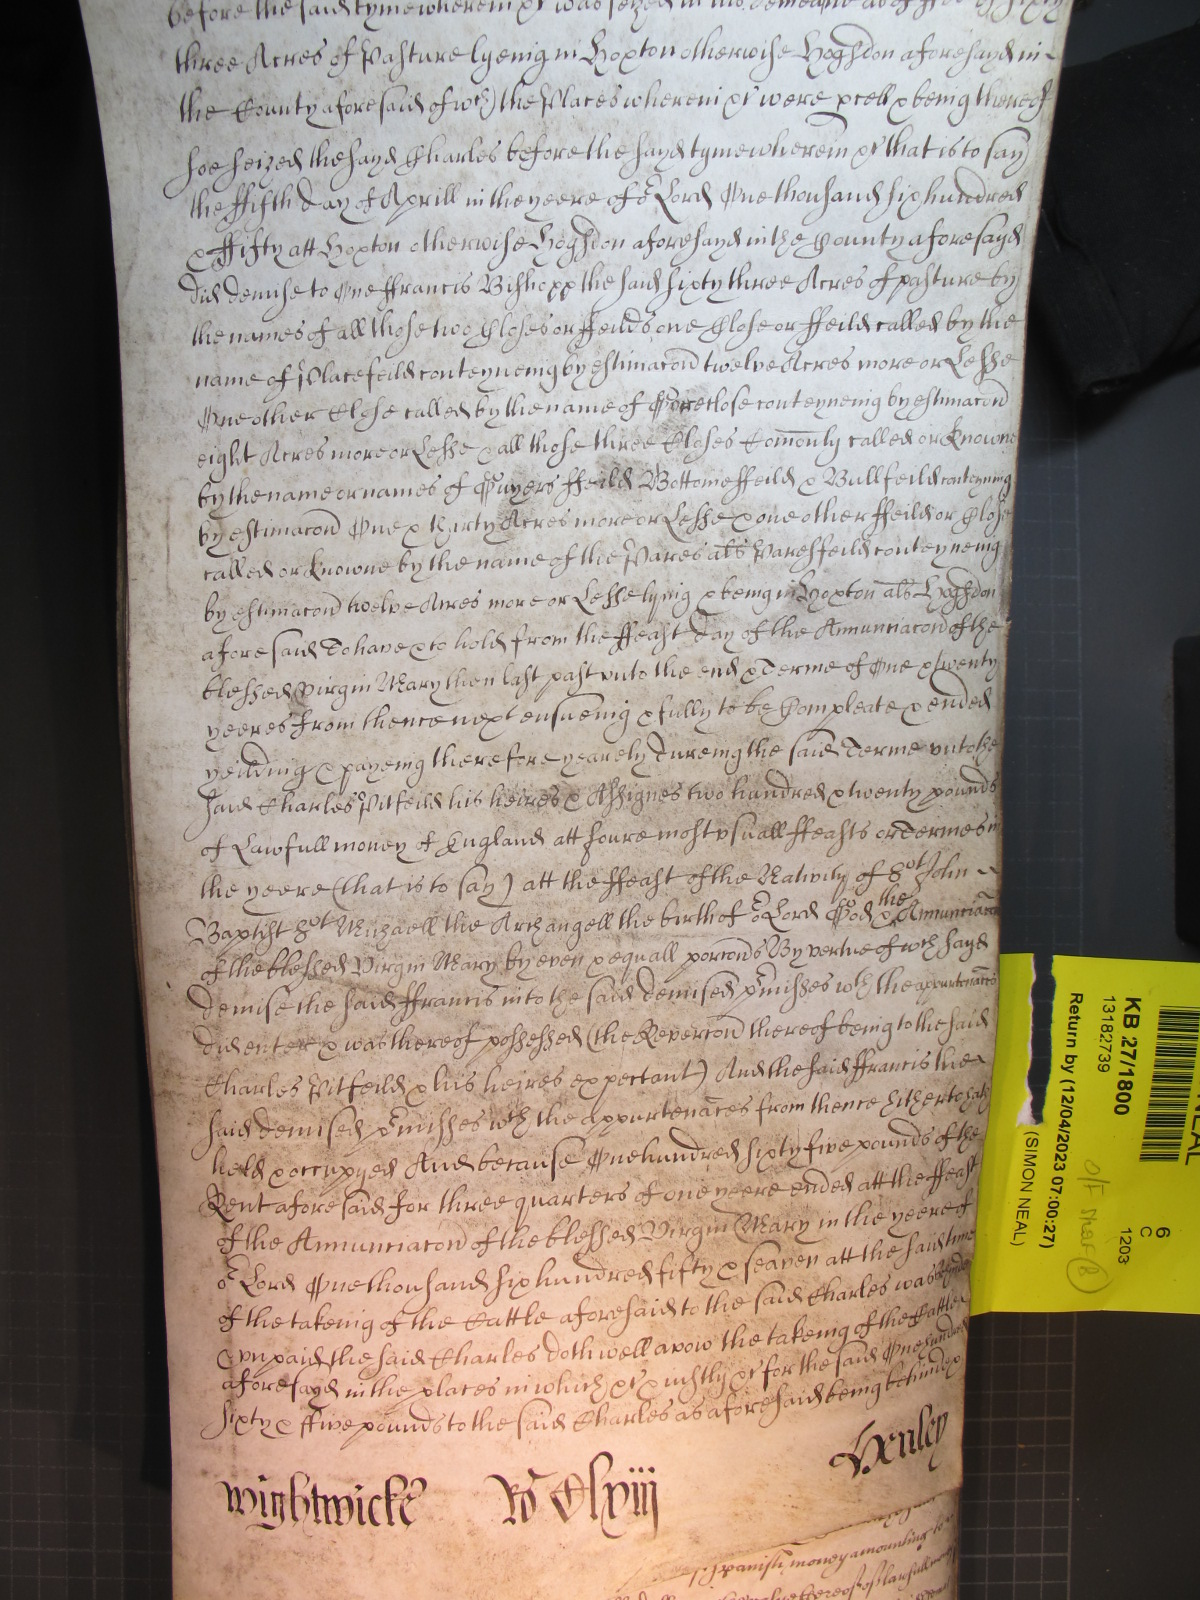 before the said tyme wherein &c was seized in his demeasne as of ffee of sixty
three Acres of Pasture lyeing in Hoxton otherwise Hogsdon aforesayd in
the County aforesaid of wch the Places wherein &c were pcell & being thereof
soe seized the sayd Charles before the sayd tyme wherein &c that is to say
the ffifth day of Aprill in the yeere of or Lord One thousand six hundred
& ffifty att Hoxton otherwise Hogsdon aforesayd in the County aforesayd
did demise to One ffrancis Bishopp the said sixty three Acres of pasture by
the names of all those two Closes or ffeilds one Close or ffeild called by the
name of Placefeild conteyneing by estimacon twelve Acres more or Lesse
One other Close called by the name of Goreclose conteyneing by estimacon
eight Acres more or Lesse & all those three Closes Comonly called or knowne
by the name or names of ffeild Bottomeffeild & Bullfeild conteyning
by estimacon One & thirty Acres more or Lesse & one other ffeild or Close
called or knowne by the name of the Pares als Paresfeild conteyneing
by estimacon twelve Acres more or Lesse lying & being in Hoxton als Hogsdon
aforesaid To have & to hold from the ffeast day of the Annunciacon of the
blessed Virgin Mary then last past unto the end & Terme of One & twenty
yeeres from thence next ensueing & fully to be Compleate & ended
yeilding & payeing therefore yearely dureing the said Terme unto the
said Charles Pitfeild his heires & Assignes two hundred & twenty pounds
of Lawfull money of England att foure most usuall ffeasts or Termes in
the yeere (that is to say) att the ffeast of the Nativity of St John
Baptist St Michaell the Archangell the birth of or Lord God & the Annunciacon
of the blessed Virgin Mary by even & equall porcons By vertue of wch sayd
demise the said ffrancis into the said demised pmisses wth the appurtenaces
did enter & was thereof possessed (the Revercon thereof being to the said
Charles Pitfeild & his heires expectant) And the said ffrancis the
said demised pmisses wth the appurtenaces from thence hitherto hath
held & occupyed And because One hundred sixty five pounds of the
Rent aforesaid for three quarters of one yeere ended att the ffeast
of the Annunciacon of the blessed Virgin Mary in the yeere of
or Lord One thousand six hundred fifty & seaven att the said time
of the takeing of the Cattle aforesaid to the said Charles was behinde
& unpaid the said Charles doth well avow the takeing of the Cattle
aforesayd in the places in which &c & justly &c for the said One hundred
sixty & ffive pounds to the said Charles as aforesaid being behinde &c
Henley
Wightwicke Ro Clxiij
Spanish money amounting to
thereof of lawfull money
NEAL
6
C
1203
KB 27/1800
13182739
Return by (12/04/2023 07:00:27)
(SIMON NEAL)
8